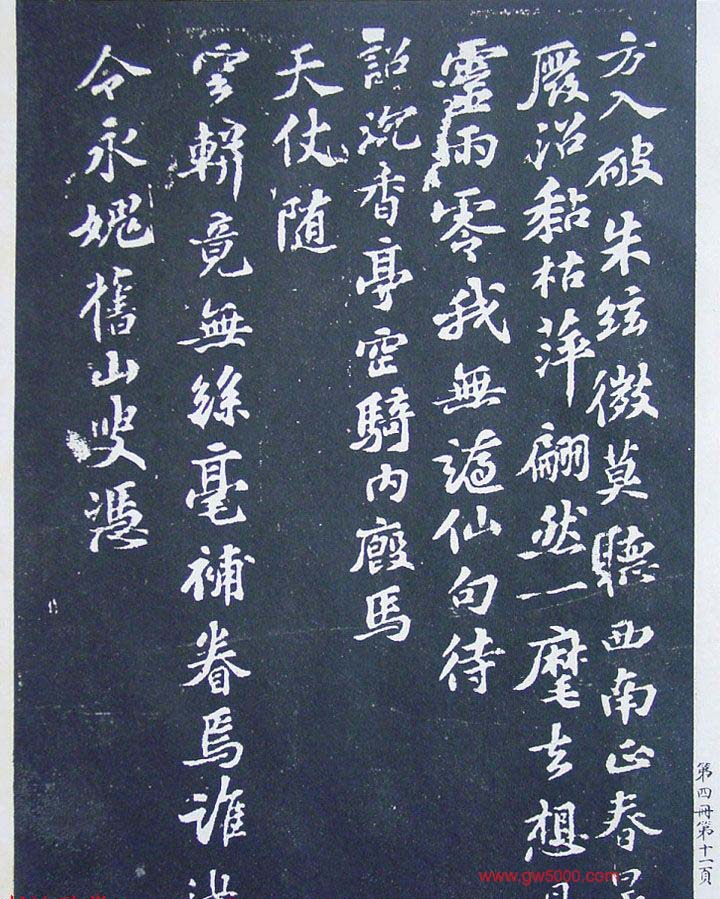 方入破朱絃微莫聽西南正春
廢沼黏枯萍翩然一麾去想
靈雨零我無謫仙句待
詔沉香亭空騎内廐馬
天仗随
雲軿竟無絲毫補眷焉誰
令永媿舊山叟憑
第四冊第十一頁
www.gw5000.com